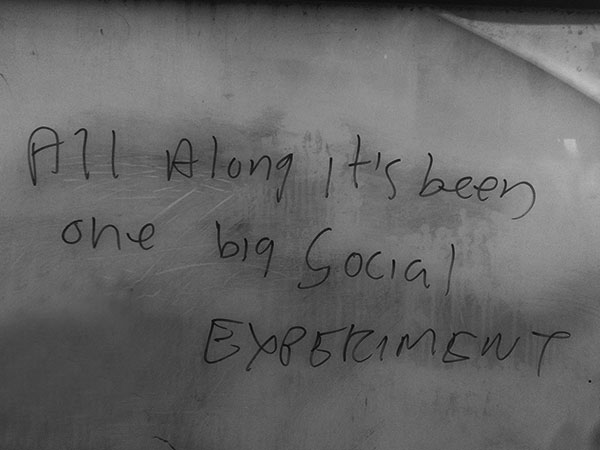 All Along it's been
one big Social
EXPERIMENT